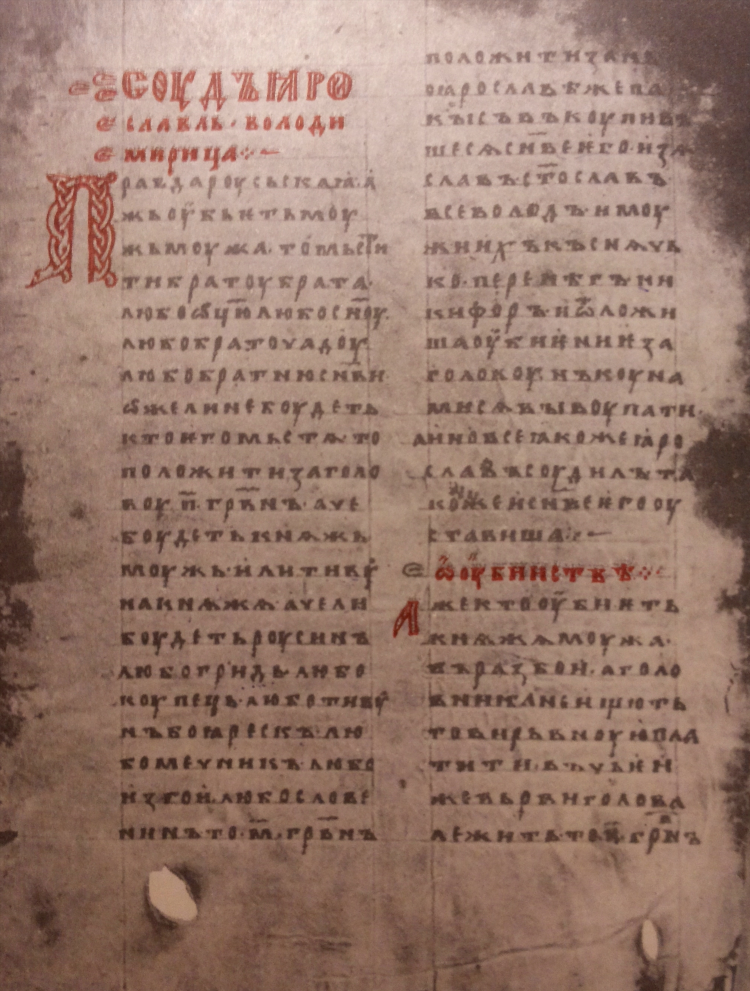 СОУДЪ ꙖРО
СЛАВЛЬ · ВОЛОДИ
МИРИЦА
Правда роусьскаꙗ · а
жь оубьѥть моу
жь моужа · то мьсти
ти братоу брата ·
любо ѡцю любо сн҃оу ·
любо братоучадоу
любо братню сн҃ви
ѡже ли не боудеть
кто ѥго мьстѧ то
положити за голо
воу · п҃ · грв҃нъ · аче
боудеть кнѧжь
моужь · или тивоу
на кнѧжѧ · аче ли
боудеть роусинъ
любо гридь · любо
коупець · любо тивоу
нъ боꙗрескъ · лю
бо мечникъ · любо
изгои · любо слове
нинъ то · м҃ · грв҃нъ
положити за нь
ꙗрославѣ же па
кы съвъкоупивъ
шесѧ сн҃ве ѥго · изѧ
славъ ст҃ославъ ·
всеволодъ · и моу
жи ихъ къснѧчь
ко · перенѣгъ ни
кифоръ · и ѿложи
ша оубиѥниѥ за
головоу · нъ коуна
ми сѧ выкоупати ·
а ино все ꙗкоже ꙗро
славъ соудилъ та
коже и сн҃ве ѥго оу
ставиша
Ѡ оубииствѣ
Аже кто оубиѥть
кнѧжѧ моужа ·
въ разбои · а голо
вника не ищють
то вирьвноую пла
тити · въ чьѥи
же вьрви голова
лежить то · п҃ · грв҃нъ